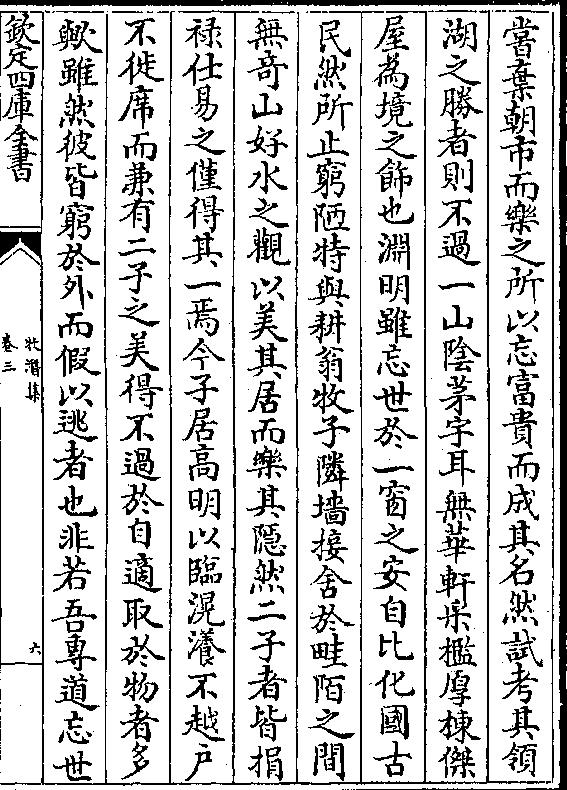 嘗棄朝市而樂之所以忘富貴而成其名然試考其領
湖之勝者則不過一山陰茅宇耳無華軒采檻厚棟傑
屋為境之飾也淵明雖忘世於一窗之安自比化國古
民然所止窮陋特與耕翁牧子隣墻接舍於畦陌之間
無奇山好水之觀以美其居而樂其隱然二子者皆捐
祿仕易之僅得其一焉今子居高明以臨滉瀁不越戶
不徙席而兼有二子之美得不過於自適取於物者多
歟雖然彼皆窮於外而假以逃者也非若吾專道忘世
欽定四庫全書
牧潛集
卷三
六